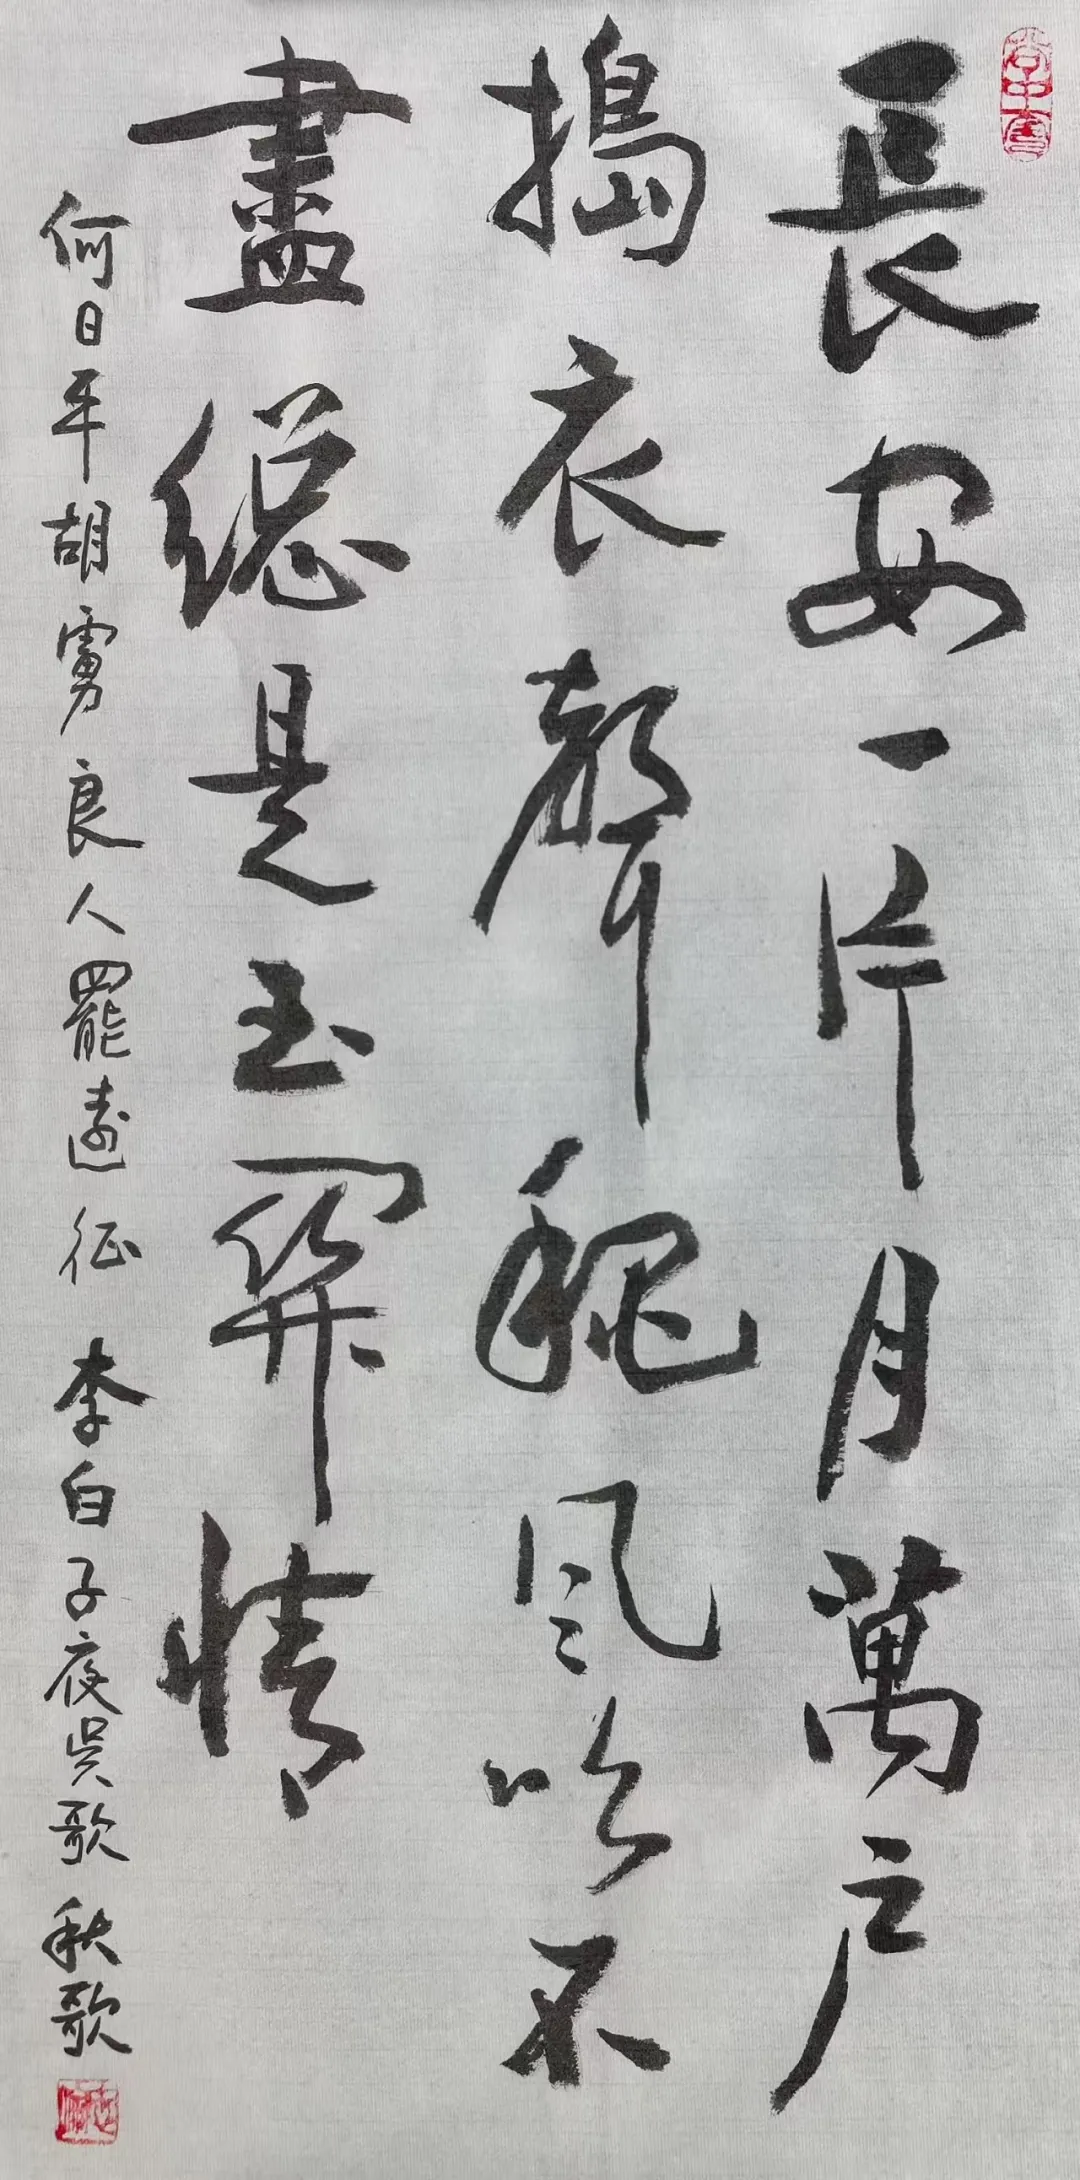 長安一片月萬户
搗衣聲秋風吹不
盡總是玉關情
何日平胡虜良人罷遠征 李白子夜吳歌 秋歌